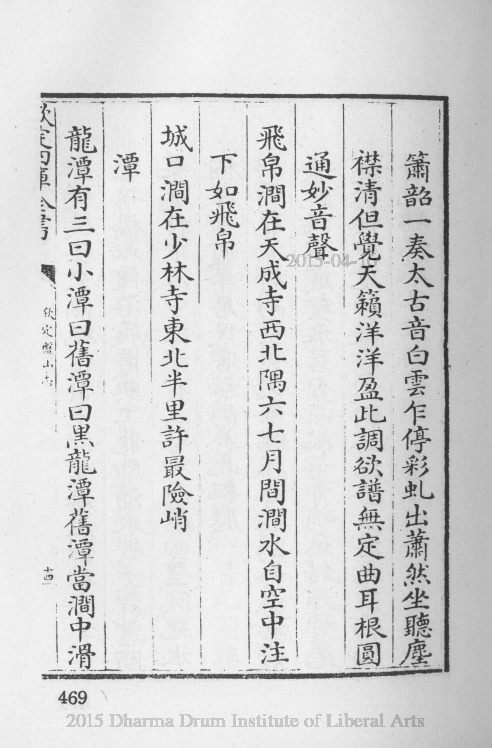 簫韶一奏太古音白雲乍停彩虬出蕭然坐聽塵
襟清但覺天籟洋洋盈此調欲譜無定曲耳根圓
通妙音聲
飛帛澗在天成寺西北隅六七月間澗水自空中注
下如飛帛
城口澗在少林寺東北半里許最險峭
潭
龍潭有三曰小潭曰舊潭曰黑龍潭舊潭當澗中滑
欽定四庫全書
欽定盤山志
十四
2015-04-10
469
2015 Dharma Drum Institute of Liberal Arts